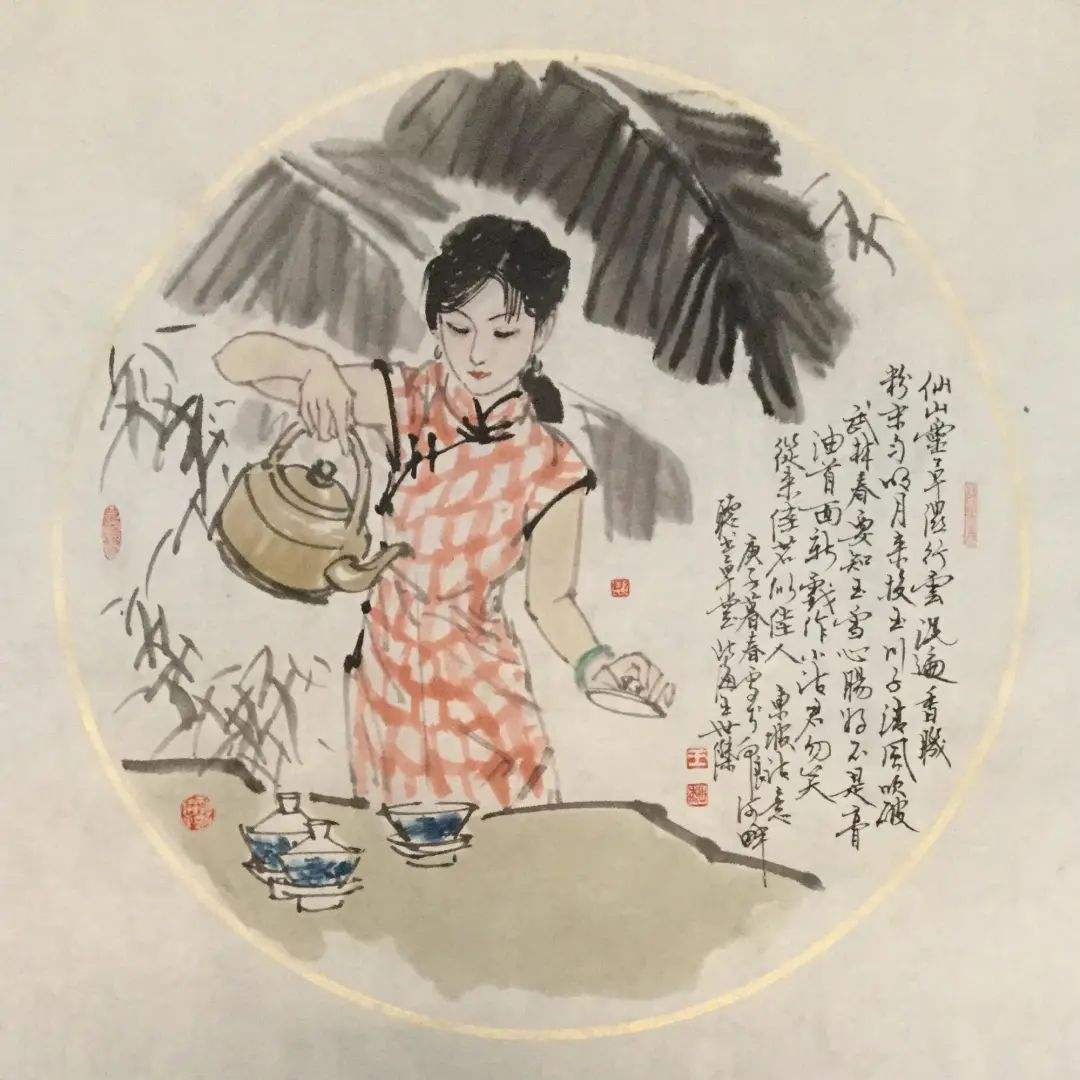 仙山靈草濕行雲洗遍香肌
粉未匀明月来投玉川子清風吹破
武林春要知玉雪心腸好不是膏
油首面新戲作小詩君勿笑
從来佳茗似佳人 東坡詩意
庚子暮春寫於河畔
草堂王世傑
王